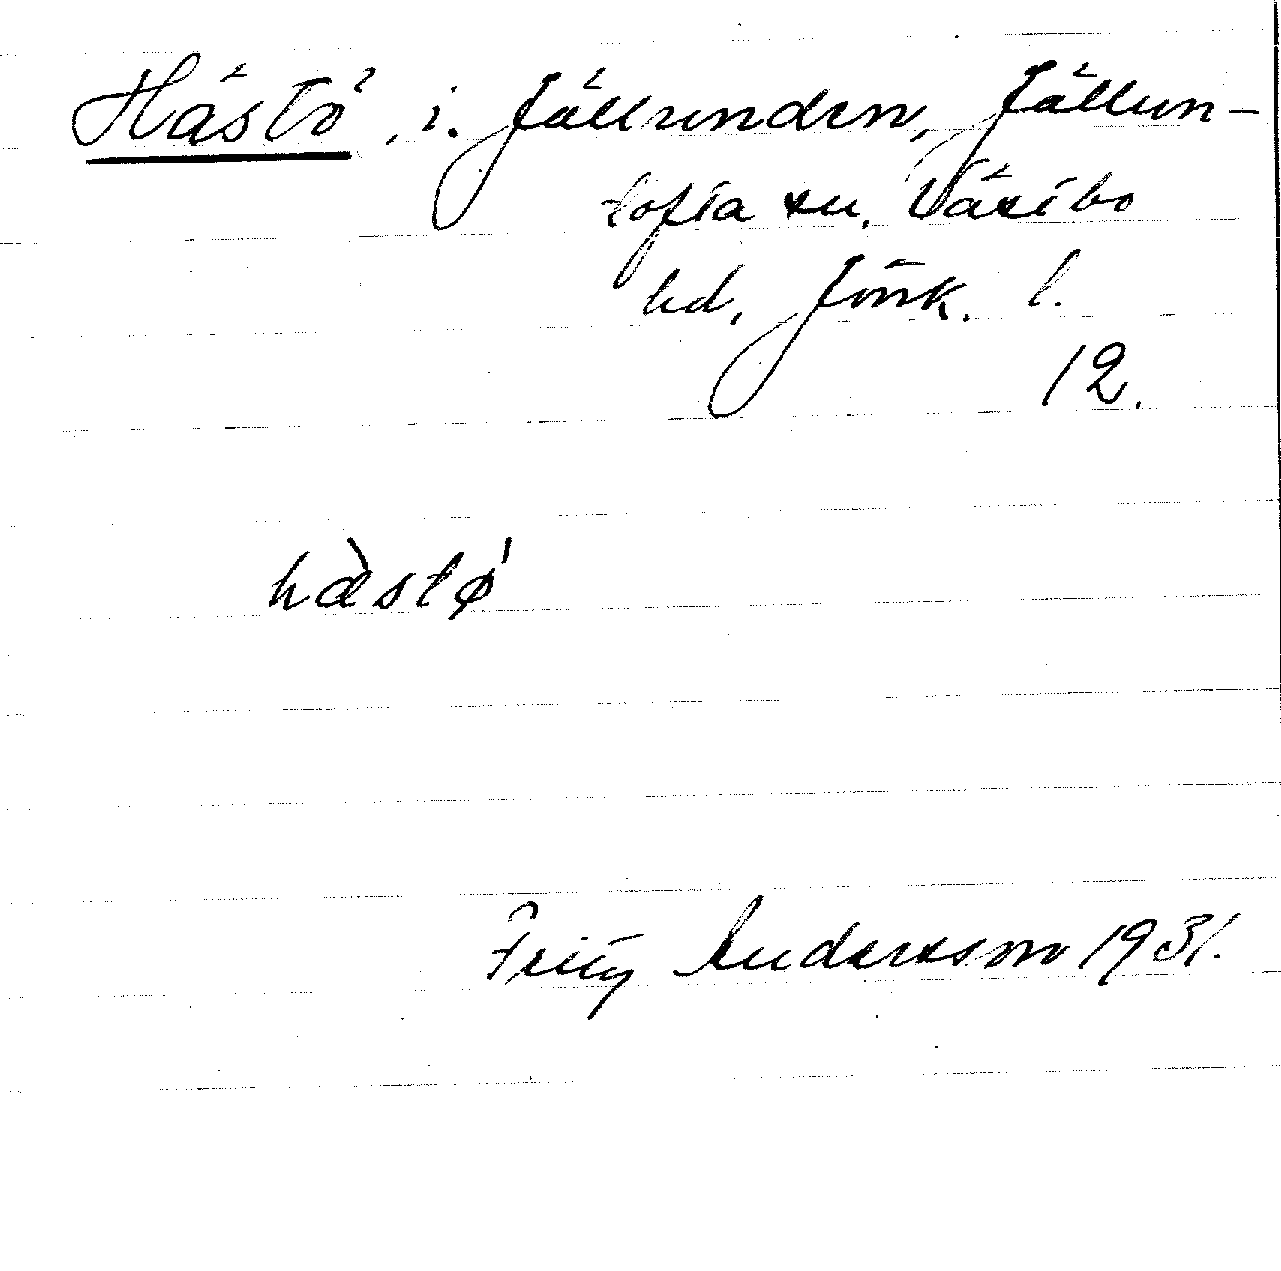 Hästö, i. Jällunden, Jällun-
tofta sn. Västbo
hd, Jönk. l.
12.
hæ̀stø̍
Fritz Andersson 1931.